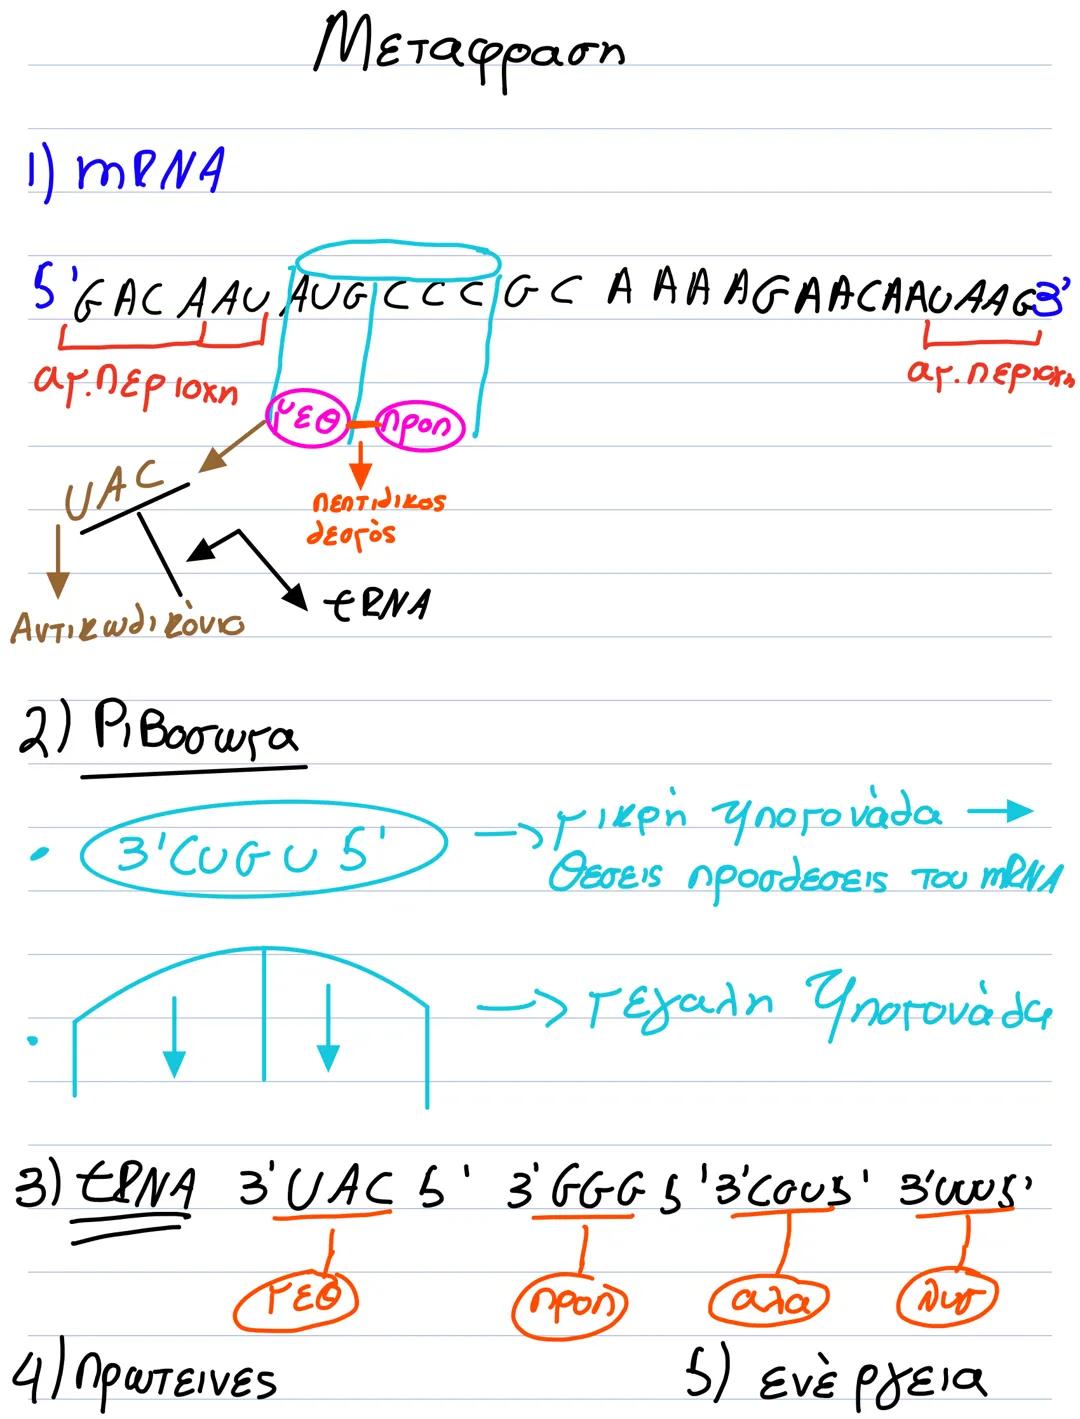 Μεταφραση
1) mRNA
5' GACAAU AUG CCC GC A AAAGAACAAUAAG 3'
αμ.περιοχη αμ.περιοχη
μεθ προπ
UAC
πεπτιδικος
δεσμὸς
tRNA
Αντικωδικόνιο
2) Ριβοσωμα
3'CUGU 5' μικρή Υπομονάδα
Θεσεις προσδεσεις του mRNA
μεγαλη Υπομονάδα
3) tRNA 3'UAC 5' 3'GGG 5' 3'CGU5' 3'UUU5'
μεθ προπ αλα λυσ
4) Πρωτεινες 5) ενέργεια